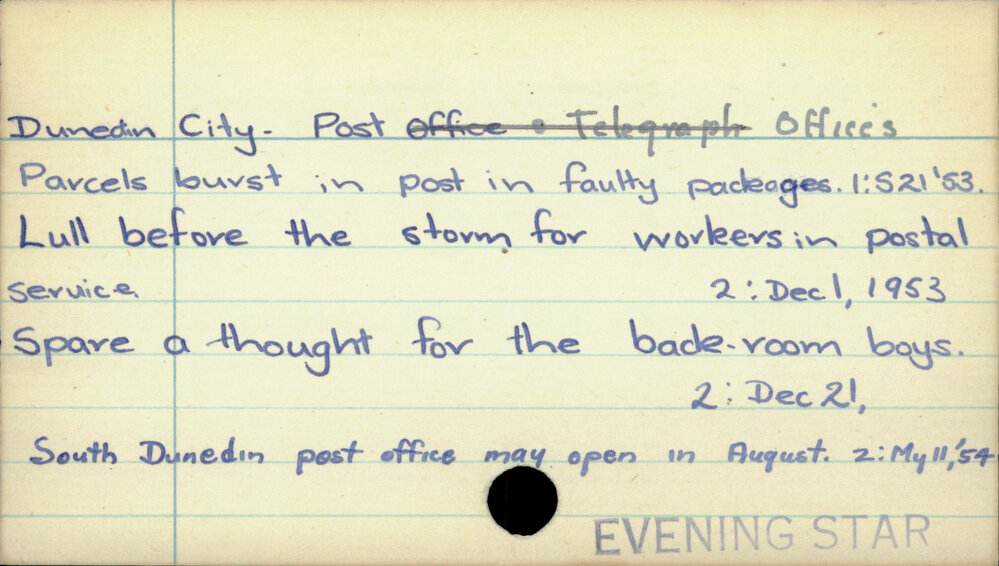 Dunedin City - Post ~~office & Telegraph~~ Offices
Parcels burst in post in faulty packages. 1:S21 '53.
Lull before the storm for workers in postal
service 2: Dec 1, 1953
Spare a thought for the back-room boys.
2: Dec 21,
South Dunedin post office may open in August. 2: My 11, '54
EVENING STAR